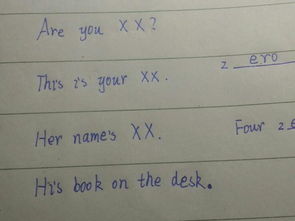 Are you XX?
z ero
This is your XX.
Her name's XX.
Four z
His book on the desk.